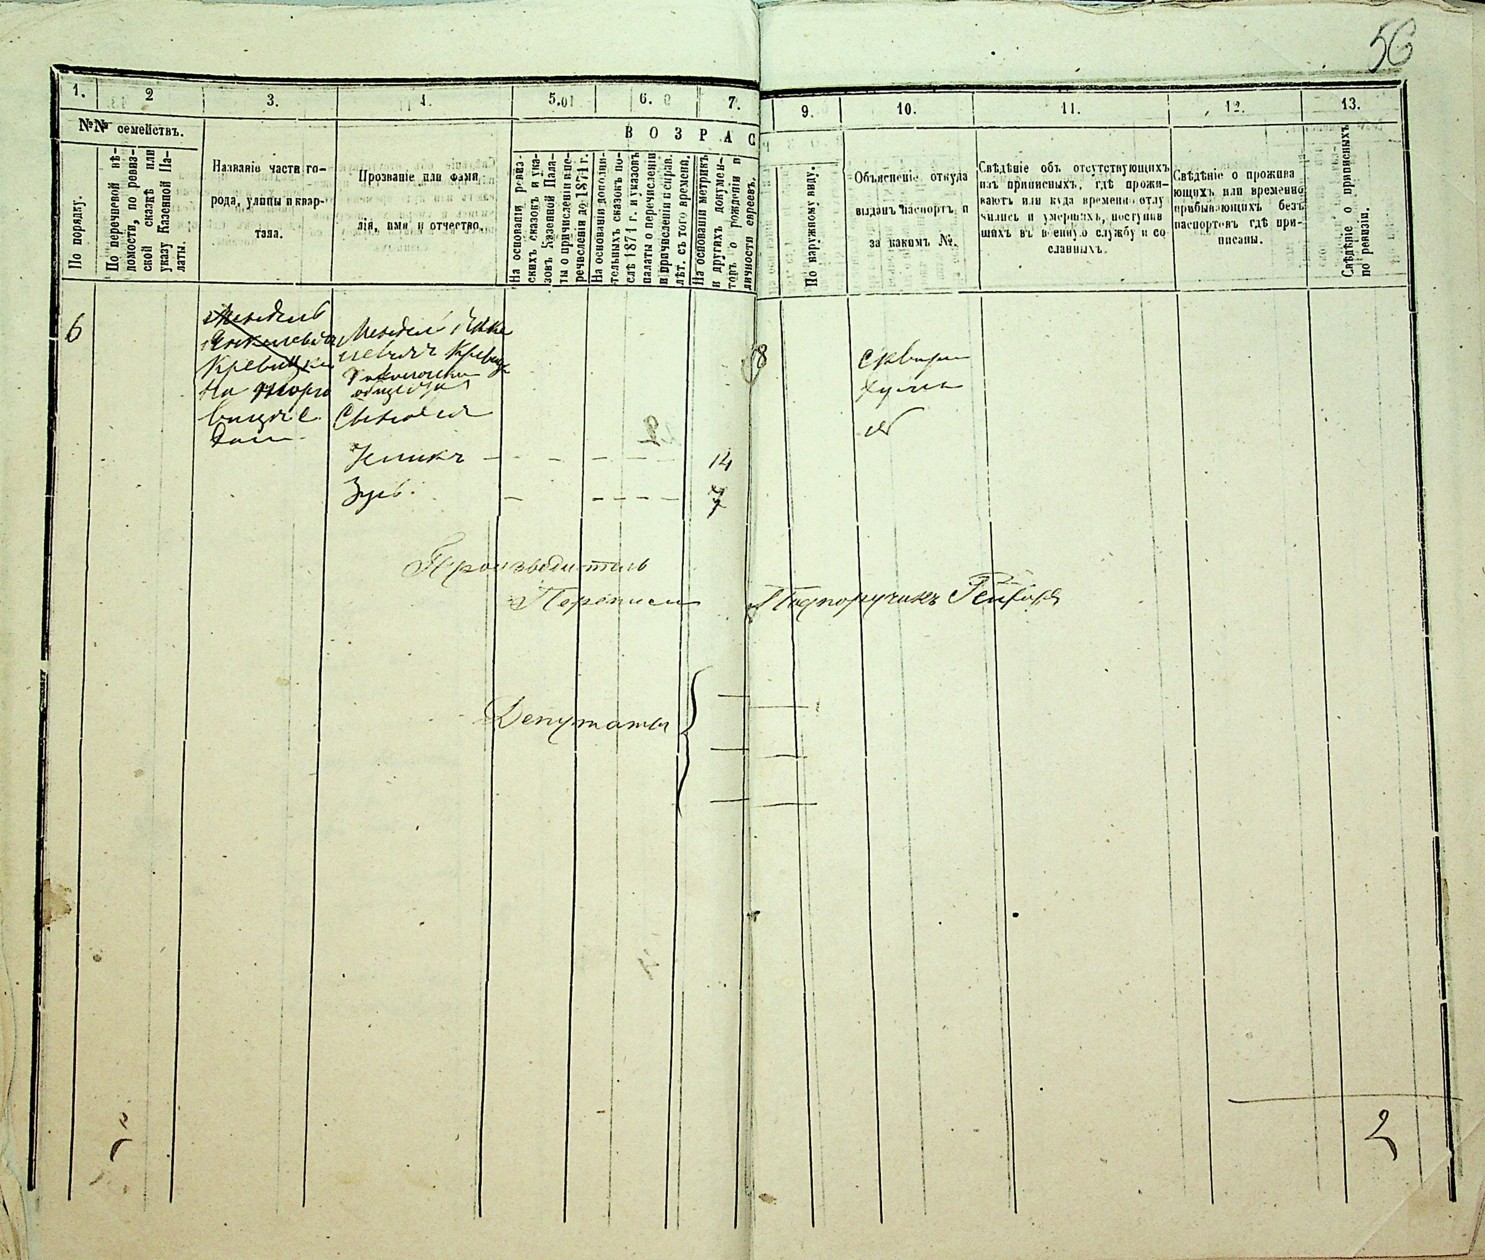 56
1.
2
3.
4.
5.
6.
7.
9.
10.
11.
12.
13.
№№ семействъ.
ВОЗРАС
По порядку.
По перечневой вѣ-
домости, по ревиз-
ской сказкѣ или
указу Казенной Па-
латы.
Названіе части го-
рода, улицы и квар-
тала.
Прозваніе или фами
лія, имя и отчество.
На основаніи ревиз-
скихъ сказокъ и ука-
зовъ Казенной Пала-
ты о причисленіи и пе-
речисленіи до 1874 г.
На основаніи дополни-
тельныхъ сказокъ по-
слѣ 1874 г. и указовъ
палаты о перечисленіи
и причисленіи и справ.
лѣт. съ того времени.
На основаніи метрикъ
и другихъ докумен-
товъ о рожденіи и
личности евреевъ.
По наружному виду.
Объясненіе откуда
выданъ паспортъ и
за какимъ №.
Свѣдѣніе объ отсутствующихъ
изъ приписныхъ, гдѣ прожи-
ваютъ или куда временно отлу
чились и умершихъ, поступив
шихъ въ военную службу и со
сланныхъ.
Свѣдѣніе о прожива
ющихъ или временно
прибывающихъ безъ
паспортовъ гдѣ при-
писаны.
Свѣдѣніе о приписныхъ
по ревизіи.
6
Мендель
на
Мендель
общества
Сыновья
14
Зусь
7
Производитель
Переписи
Подпоручикъ
Депутаты
2